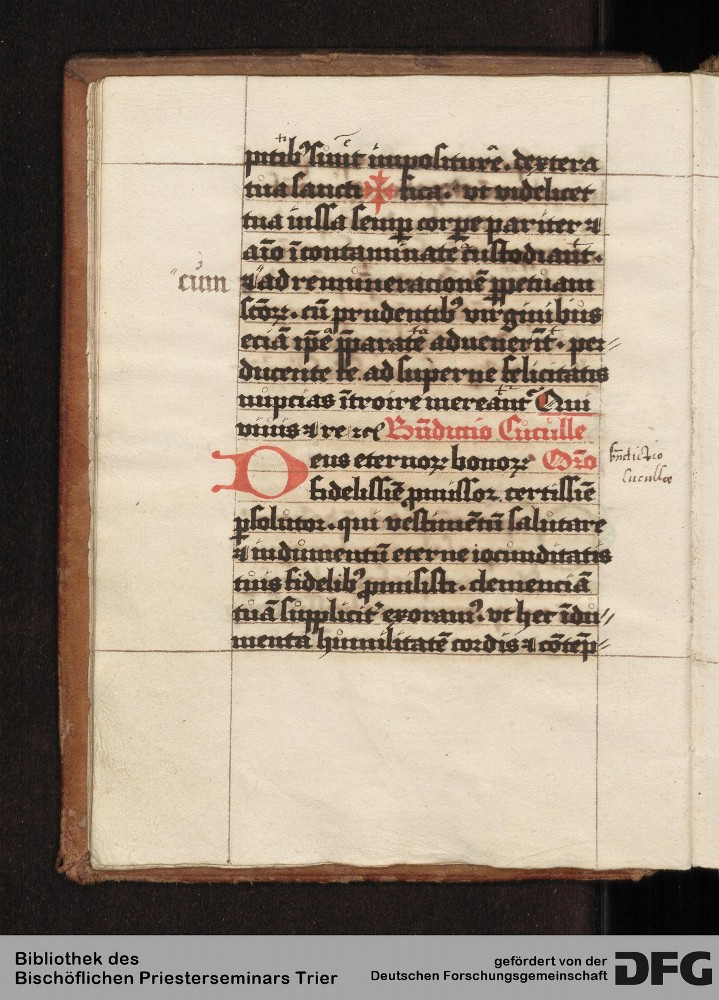 pitibꝰ sunt impositurē. dextera
tua sancti ✠ fica. vt videlicet
tua iussa semꝑ corꝑe pariter ⁊
aīo īcontaminate custodiant.
cum
⁊ ad remuneracionē ꝑpetuam
scōꝝ. cū prudentibꝰ virginibus
eciā ip̄e p̄parate advenerīt. per⸗
ducente te. ad superne felicitatis
nupcias ītroire mereant᷑ Qui
viuis ⁊ re ⁊cͣ Bn̄dictio Cuculle
Deus eternoꝝ bonoꝝ Orō
fidelissīe ꝓmissor. certissīe
ꝑsolutor. qui vestimētū salutare
⁊ indumentū eterne iocunditatis
tuis fidelibꝰ ꝓmisisti. clemenciā
tuā supplicit᷑ exoramꝰ. vt hec īdu⸗
menta humilitatē cordis ⁊ cōtēp⸗
bn̄dictio
Cucullæ
Bibliothek des
Bischöflichen Priesterseminars Trier
gefördert von der
Deutschen Forschungsgemeinschaft
DFG